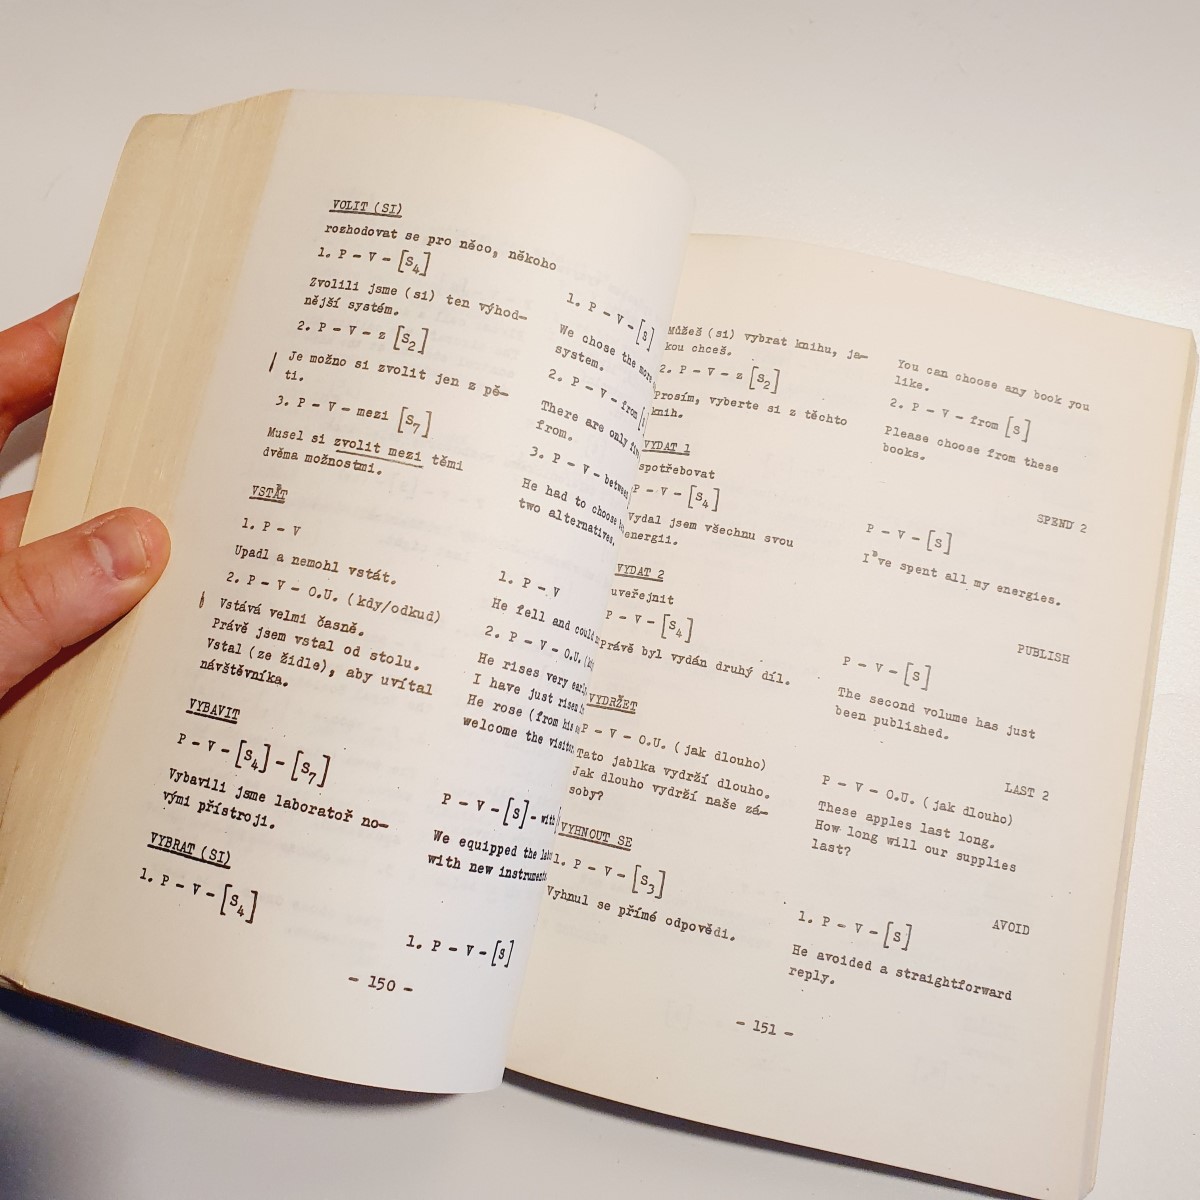 VOLIT (SI)
rozhodovat se pro něco, někoho
1. P – V – [S4]
Zvolili jsme (si) ten výhod-
nější systém.
2. P – V – z [S2]
Je možno si zvolit jen z pě-
ti.
3. P – V – mezi [S7]
Musel si zvolit mezi těmi
dvěma možnostmi.
VSTÁT
1. P – V
Upadl a nemohl vstát.
2. P – V – O.U. (kdy/odkud)
Vstává velmi časně.
Právě jsem vstal od stolu.
Vstal (ze židle), aby uvítal
návštěvníka.
VYBAVIT
P – V – [S4] – [S7]
Vybavili jsme laboratoř no-
vými přístroji.
VYBRAT (SI)
1. P – V – [S4]
1. P – V – [S]
We chose the more
system.
2. P – V – from
There are only
from.
3. P – V – between
He had to choose
two alternatives.
1. P – V
He fell and could
2. P – V – O.U.
He rises very early.
I have just risen
He rose (from his
welcome the visitor.
P – V – [S] – with
We equipped the
with new instruments
1. P – V – [S]
– 150 –
Můžeš (si) vybrat knihu, ja-
kou chceš.
2. P – V – z [S2]
Prosím, vyberte si z těchto
knih.
VYDAT 1
spotřebovat
P – V – [S4]
Vydal jsem všechnu svou
energii.
VYDAT 2
uveřejnit
P – V – [S4]
Právě byl vydán druhý díl.
VYDRŽET
P – V – O.U. (jak dlouho)
Tato jablka vydrží dlouho.
Jak dlouho vydrží naše zá-
soby?
VYHNOUT SE
1. P – V – [S3]
Vyhnul se přímé odpovědi.
You can choose any book you
like.
2. P – V – from [S]
Please choose from these
books.
SPEND 2
P – V – [S]
I've spent all my energies.
PUBLISH
P – V – [S]
The second volume has just
been published.
LAST 2
P – V – O.U. (jak dlouho)
These apples last long.
How long will our supplies
last?
AVOID
1. P – V – [S]
He avoided a straightforward
reply.
– 151 –